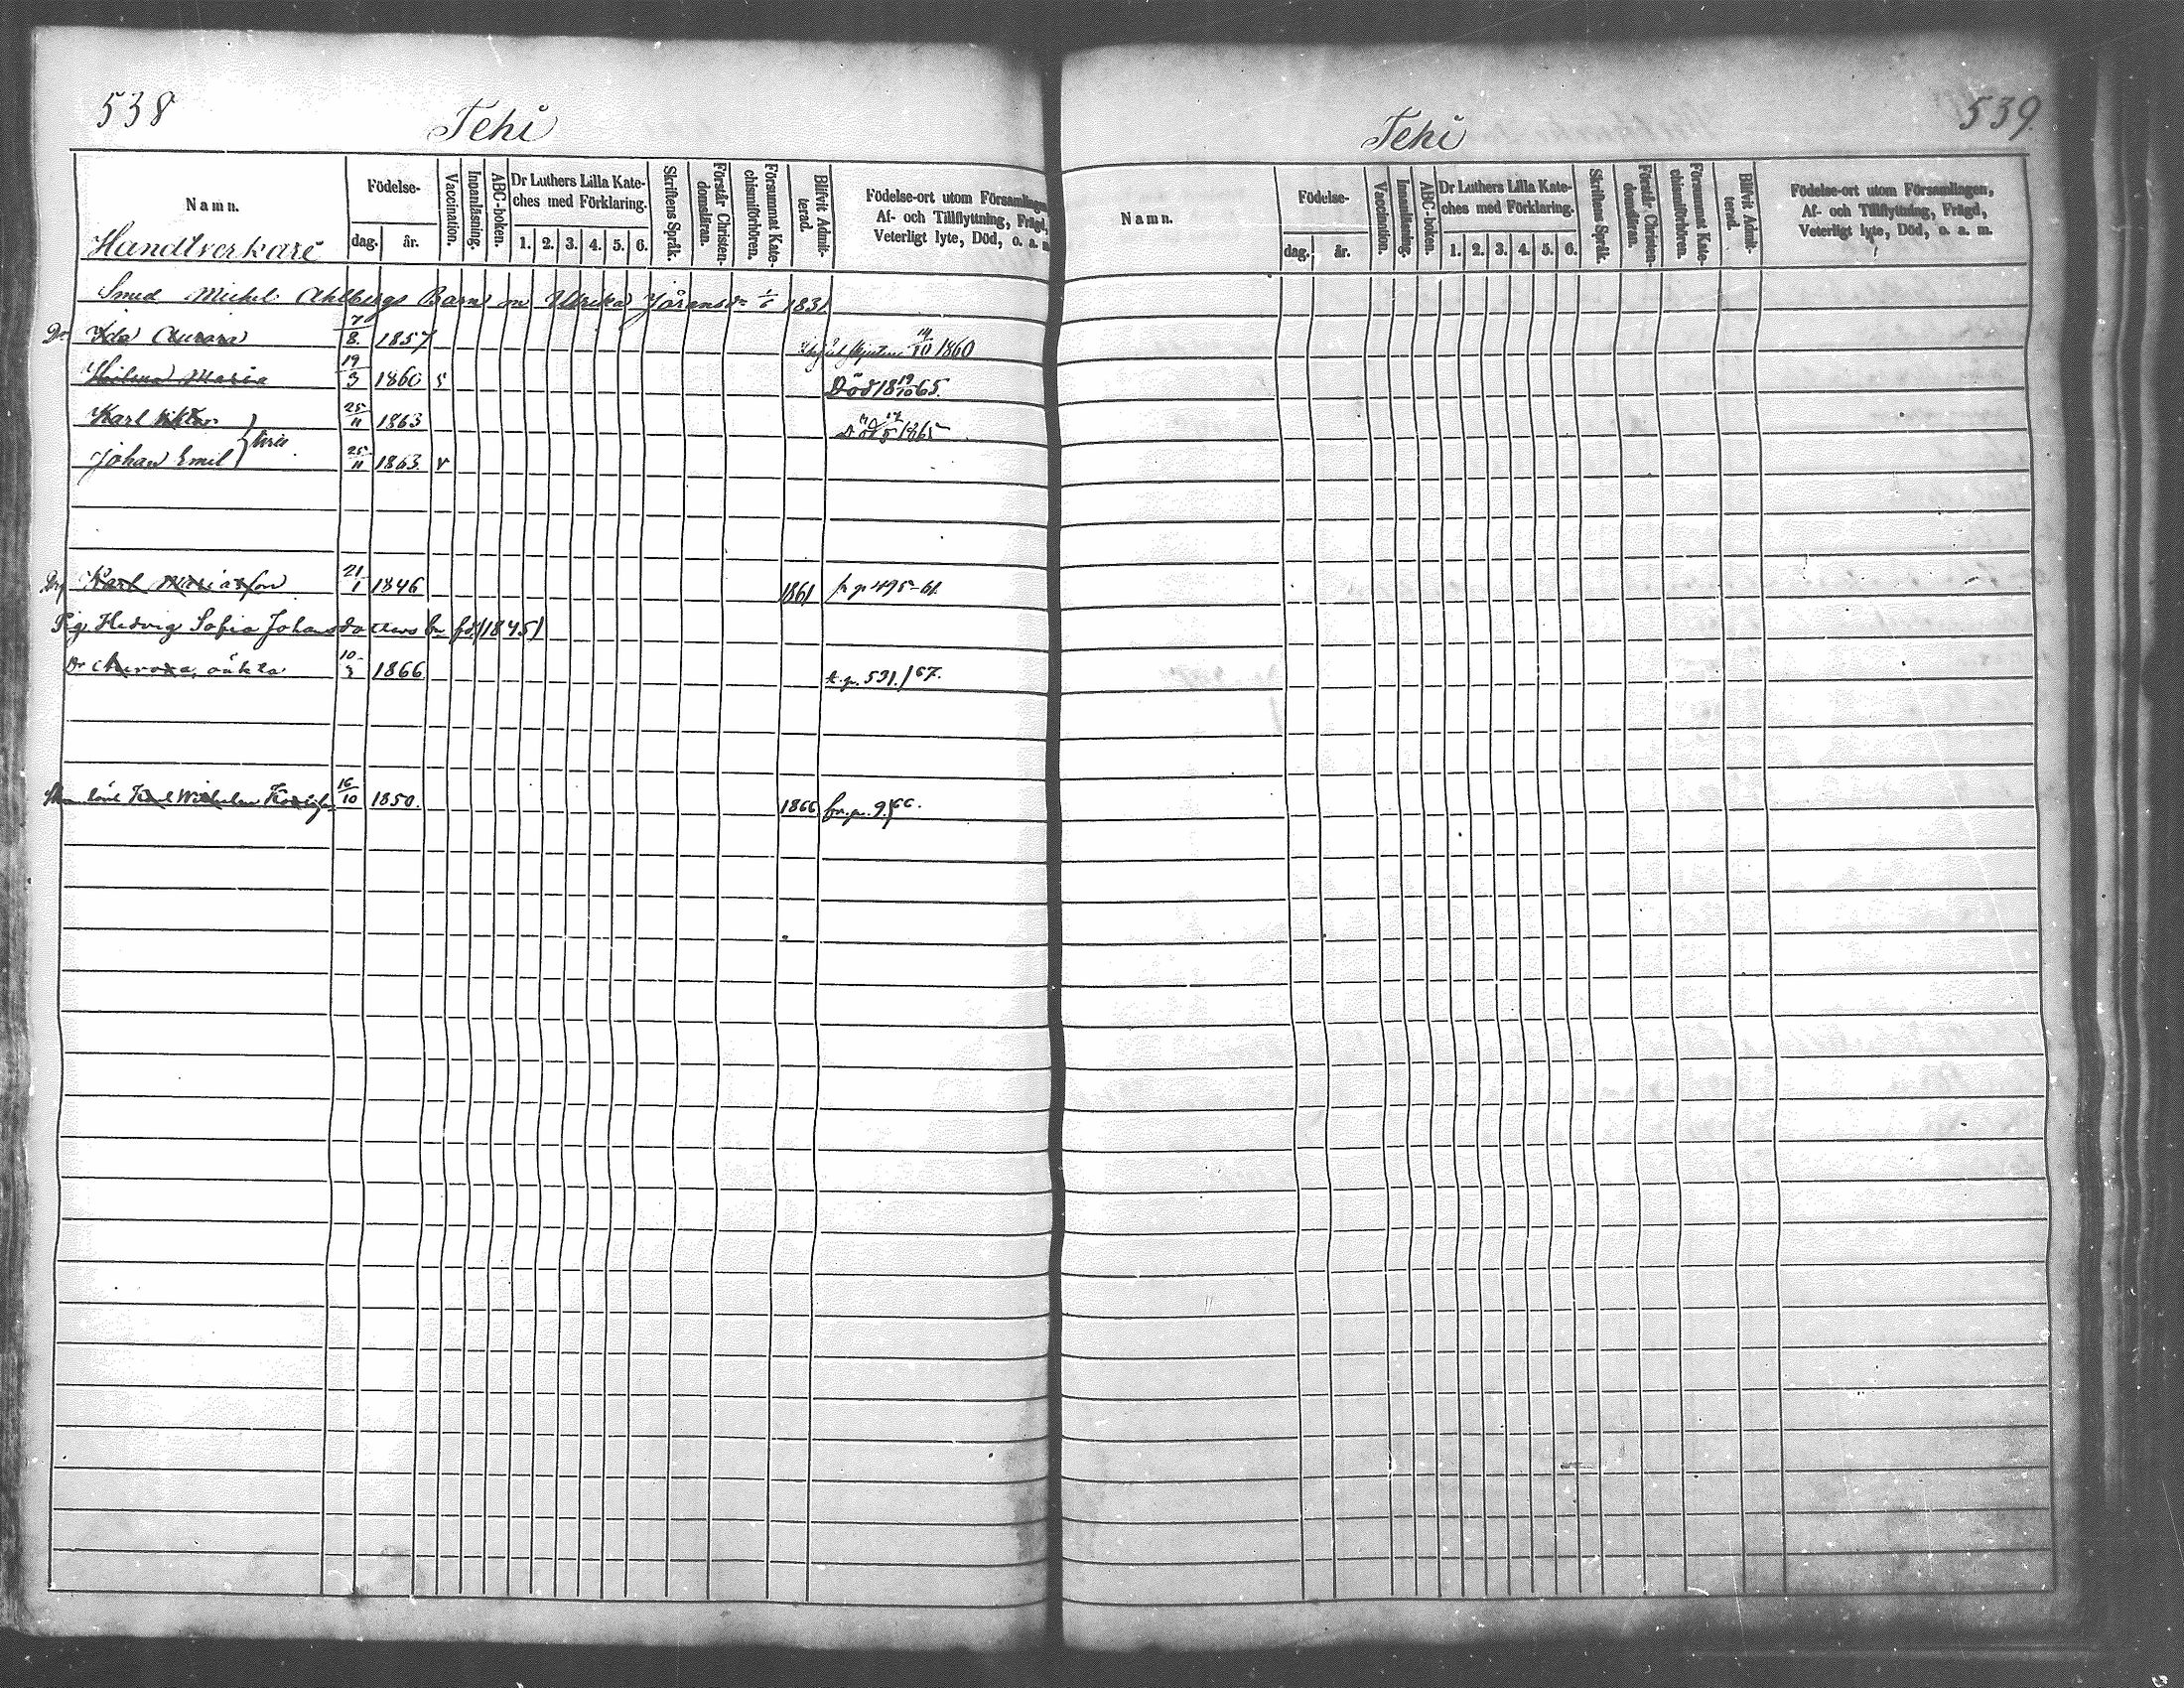 538
Tehi
Namn.
Födelse-
dag. år.
Vaccination.
Innanläsning.
ABC-boken.
Dr Luthers Lilla Kate-
ches med Förklaring.
1. 2. 3. 4. 5. 6.
Skriftens Språk.
Förstår Christen-
domsläran.
Försummat Kate-
chismiförhören.
Blifvit Admit-
terad.
Födelse-ort utom Församlingen,
Af- och Tillflyttning, Frägd,
Veterligt lyte, Död, o. a. m.
Handtverkare
Smed Michel Ahlbergs Barn m Ulrika 1/6 1831
Dr Ida Aurora 7/8 1857 14/10 1860
Hilma Maria 19/3 1860 Död 18 19/10 65.
Karl Viktor 25/11 1863 Död 1865
Johan Emil 25/11 1863 v
Karl 21/1 1846 1861 fr p 495-61.
Pig. Hedvig Sofia Johansdotters bn föd (1845)
Dr Aurora, oäkta 10/3 1866 t. p. 531./67.
Karl Wilhelm 16/10 1850. 1866 fr. p. 9./66.
539.
Tehi
Namn.
Födelse-
dag. år.
Vaccination.
Innanläsning.
ABC-boken.
Dr Luthers Lilla Kate-
ches med Förklaring.
1. 2. 3. 4. 5. 6.
Skriftens Språk.
Förstår Christen-
domsläran.
Försummat Kate-
chismiförhören.
Blifvit Admit-
terad.
Födelse-ort utom Församlingen,
Af- och Tillflyttning, Frägd,
Veterligt lyte, Död, o. a. m.